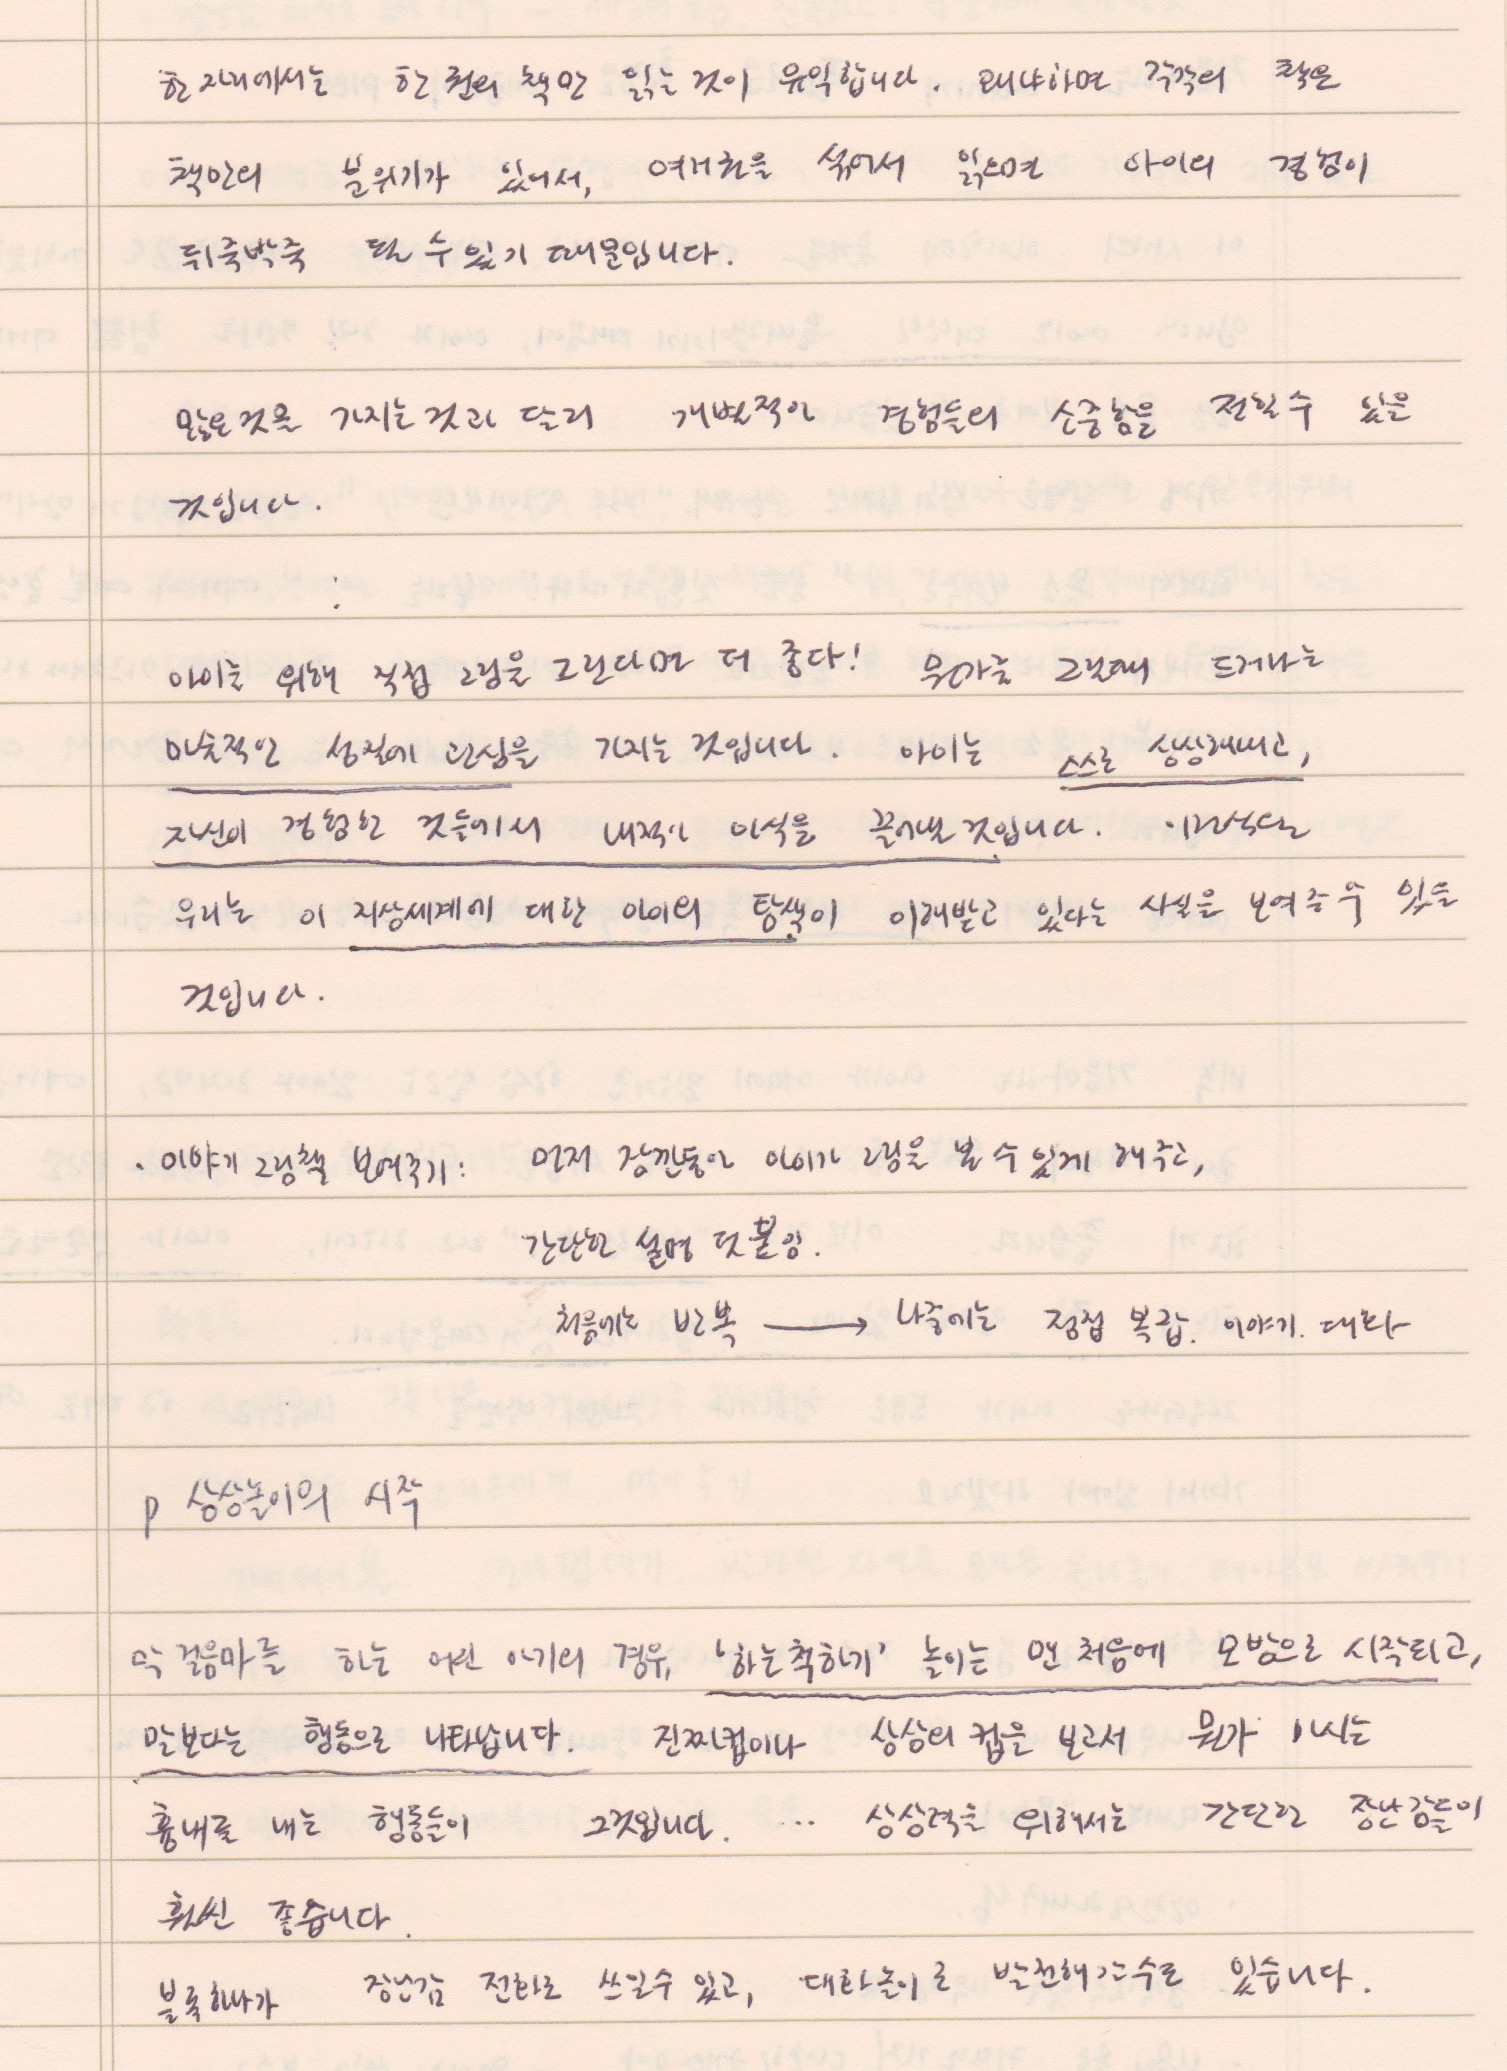 한 자리에서는 한 권의 책만 읽는 것이 유익합니다. 왜냐하면 각각의 책은
책만의 분위기가 있어서, 여러권을 섞어서 읽으면 아이의 경험이
뒤죽박죽 될 수 있기 때문입니다.
:
많은것을 가지는 것과 달리 개별적인 경험들의 소중함을 전할 수 있을
것입니다.
:
아이를 위해 직접 그림을 그린다면 더 좋다! 뭔가를 그릴때 드러나는
미술적인 성질에 관심을 가지는 것입니다. 아이는 스스로 상상해내고,
자신이 경험한 것들에서 내적인 의식을 끌어낼 것입니다.
우리는 이 지상세계에 대한 아이의 탐색이 이해받고 있다는 사실을 보여줄 수 있을
것입니다.
· 이야기 그림책 보여주기: 먼저 잠깐동안 아이가 그림을 볼 수 있게 해주고,
간단한 설명 덧붙임.
처음에는 반복 ⟶ 나중에는 점점 복잡. 이야기. 대화
p 상상놀이의 시작
막 걸음마를 하는 어린 아기의 경우, '하는척하기' 놀이는 맨 처음에 모방으로 시작되고,
말보다는 행동으로 나타납니다. 진짜컵이나 상상의 컵을 보고서 뭔가 마시는
흉내를 내는 행동들이 그것입니다. ... 상상력을 위해서는 간단한 장난감들이
훨씬 좋습니다.
블록하나가 장난감 전화로 쓰일수 있고, 대화놀이로 발전해갈 수도 있습니다.